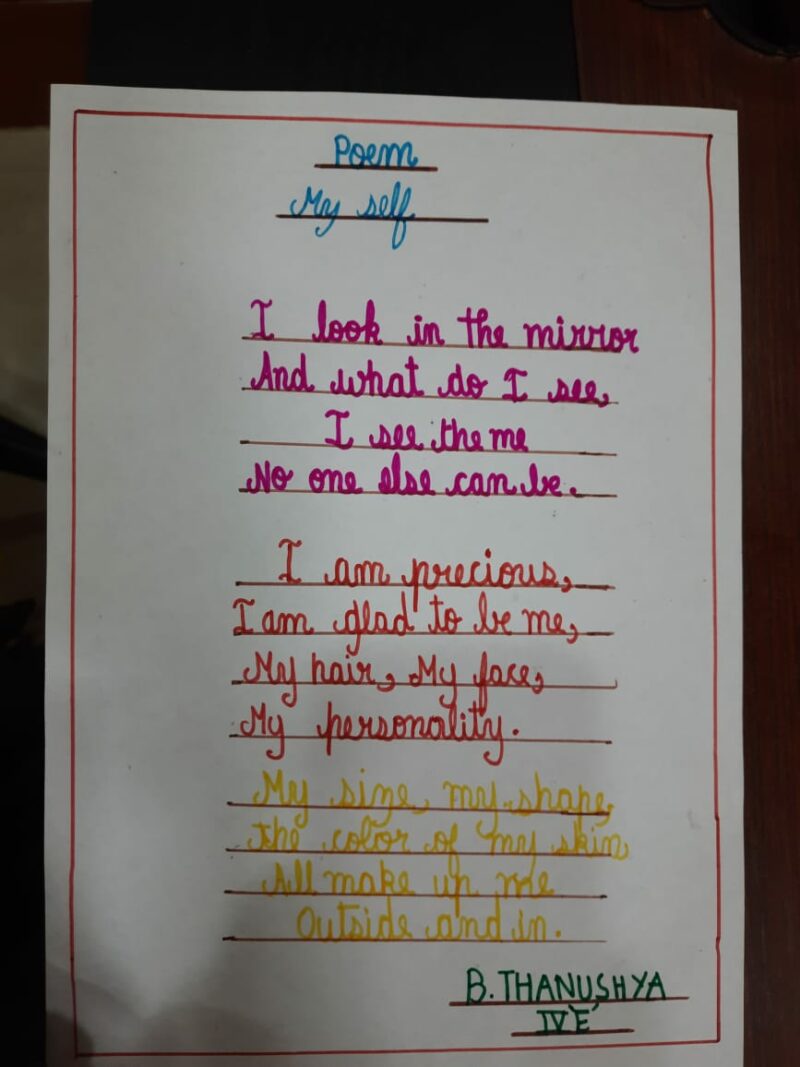 Poem
My self
I look in the mirror
And what do I see,
I see the me
No one else can be.
I am precious,
I am glad to be me,
My hair, My face,
My personality.
My size, my shape,
the color of my skin,
All make up me
Outside and in.
B. THANUSHYA
IV 'E'